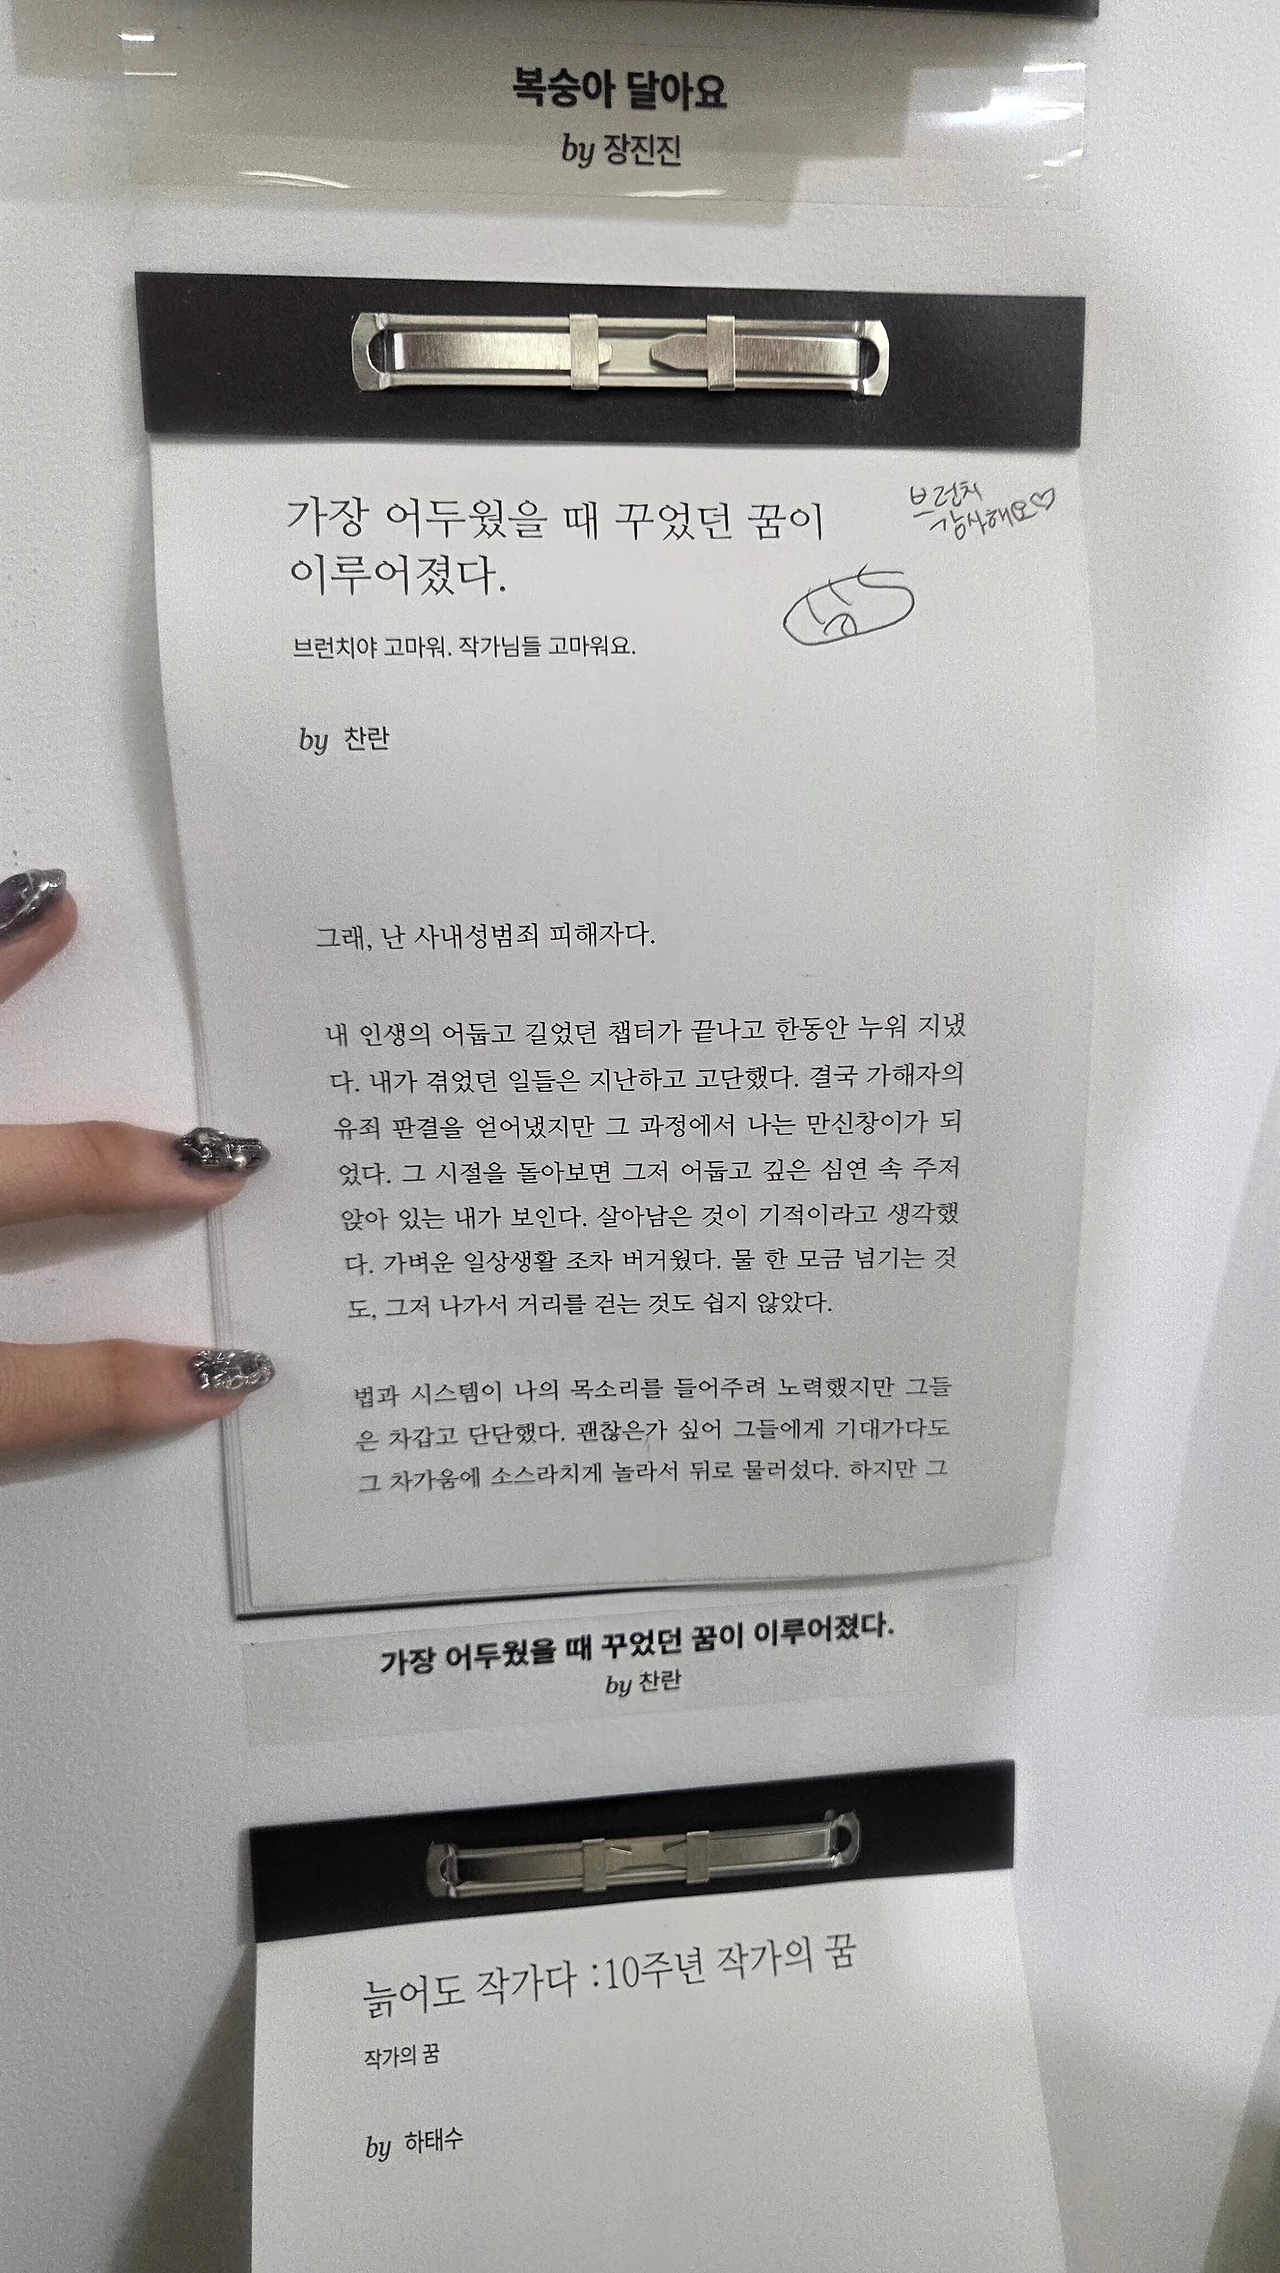 복숭아 달아요
by 장진진
가장 어두웠을 때 꾸었던 꿈이
이루어졌다.
브런치야 고마워. 작가님들 고마워요.
by 찬란
브런치
감사해요♡
그래, 난 사내성범죄 피해자다.
내 인생의 어둡고 길었던 챕터가 끝나고 한동안 누워 지냈
다. 내가 겪었던 일들은 지난하고 고단했다. 결국 가해자의
유죄 판결을 얻어냈지만 그 과정에서 나는 만신창이가 되
었다. 그 시절을 돌아보면 그저 어둡고 깊은 심연 속 주저
앉아 있는 내가 보인다. 살아남은 것이 기적이라고 생각했
다. 가벼운 일상생활 조차 버거웠다. 물 한 모금 넘기는 것
도, 그저 나가서 거리를 걷는 것도 쉽지 않았다.
법과 시스템이 나의 목소리를 들어주려 노력했지만 그들
은 차갑고 단단했다. 괜찮은가 싶어 그들에게 기대가다도
그 차가움에 소스라치게 놀라서 뒤로 물러섰다. 하지만 그
가장 어두웠을 때 꾸었던 꿈이 이루어졌다.
by 찬란
늙어도 작가다 :10주년 작가의 꿈
작가의 꿈
by 하태수